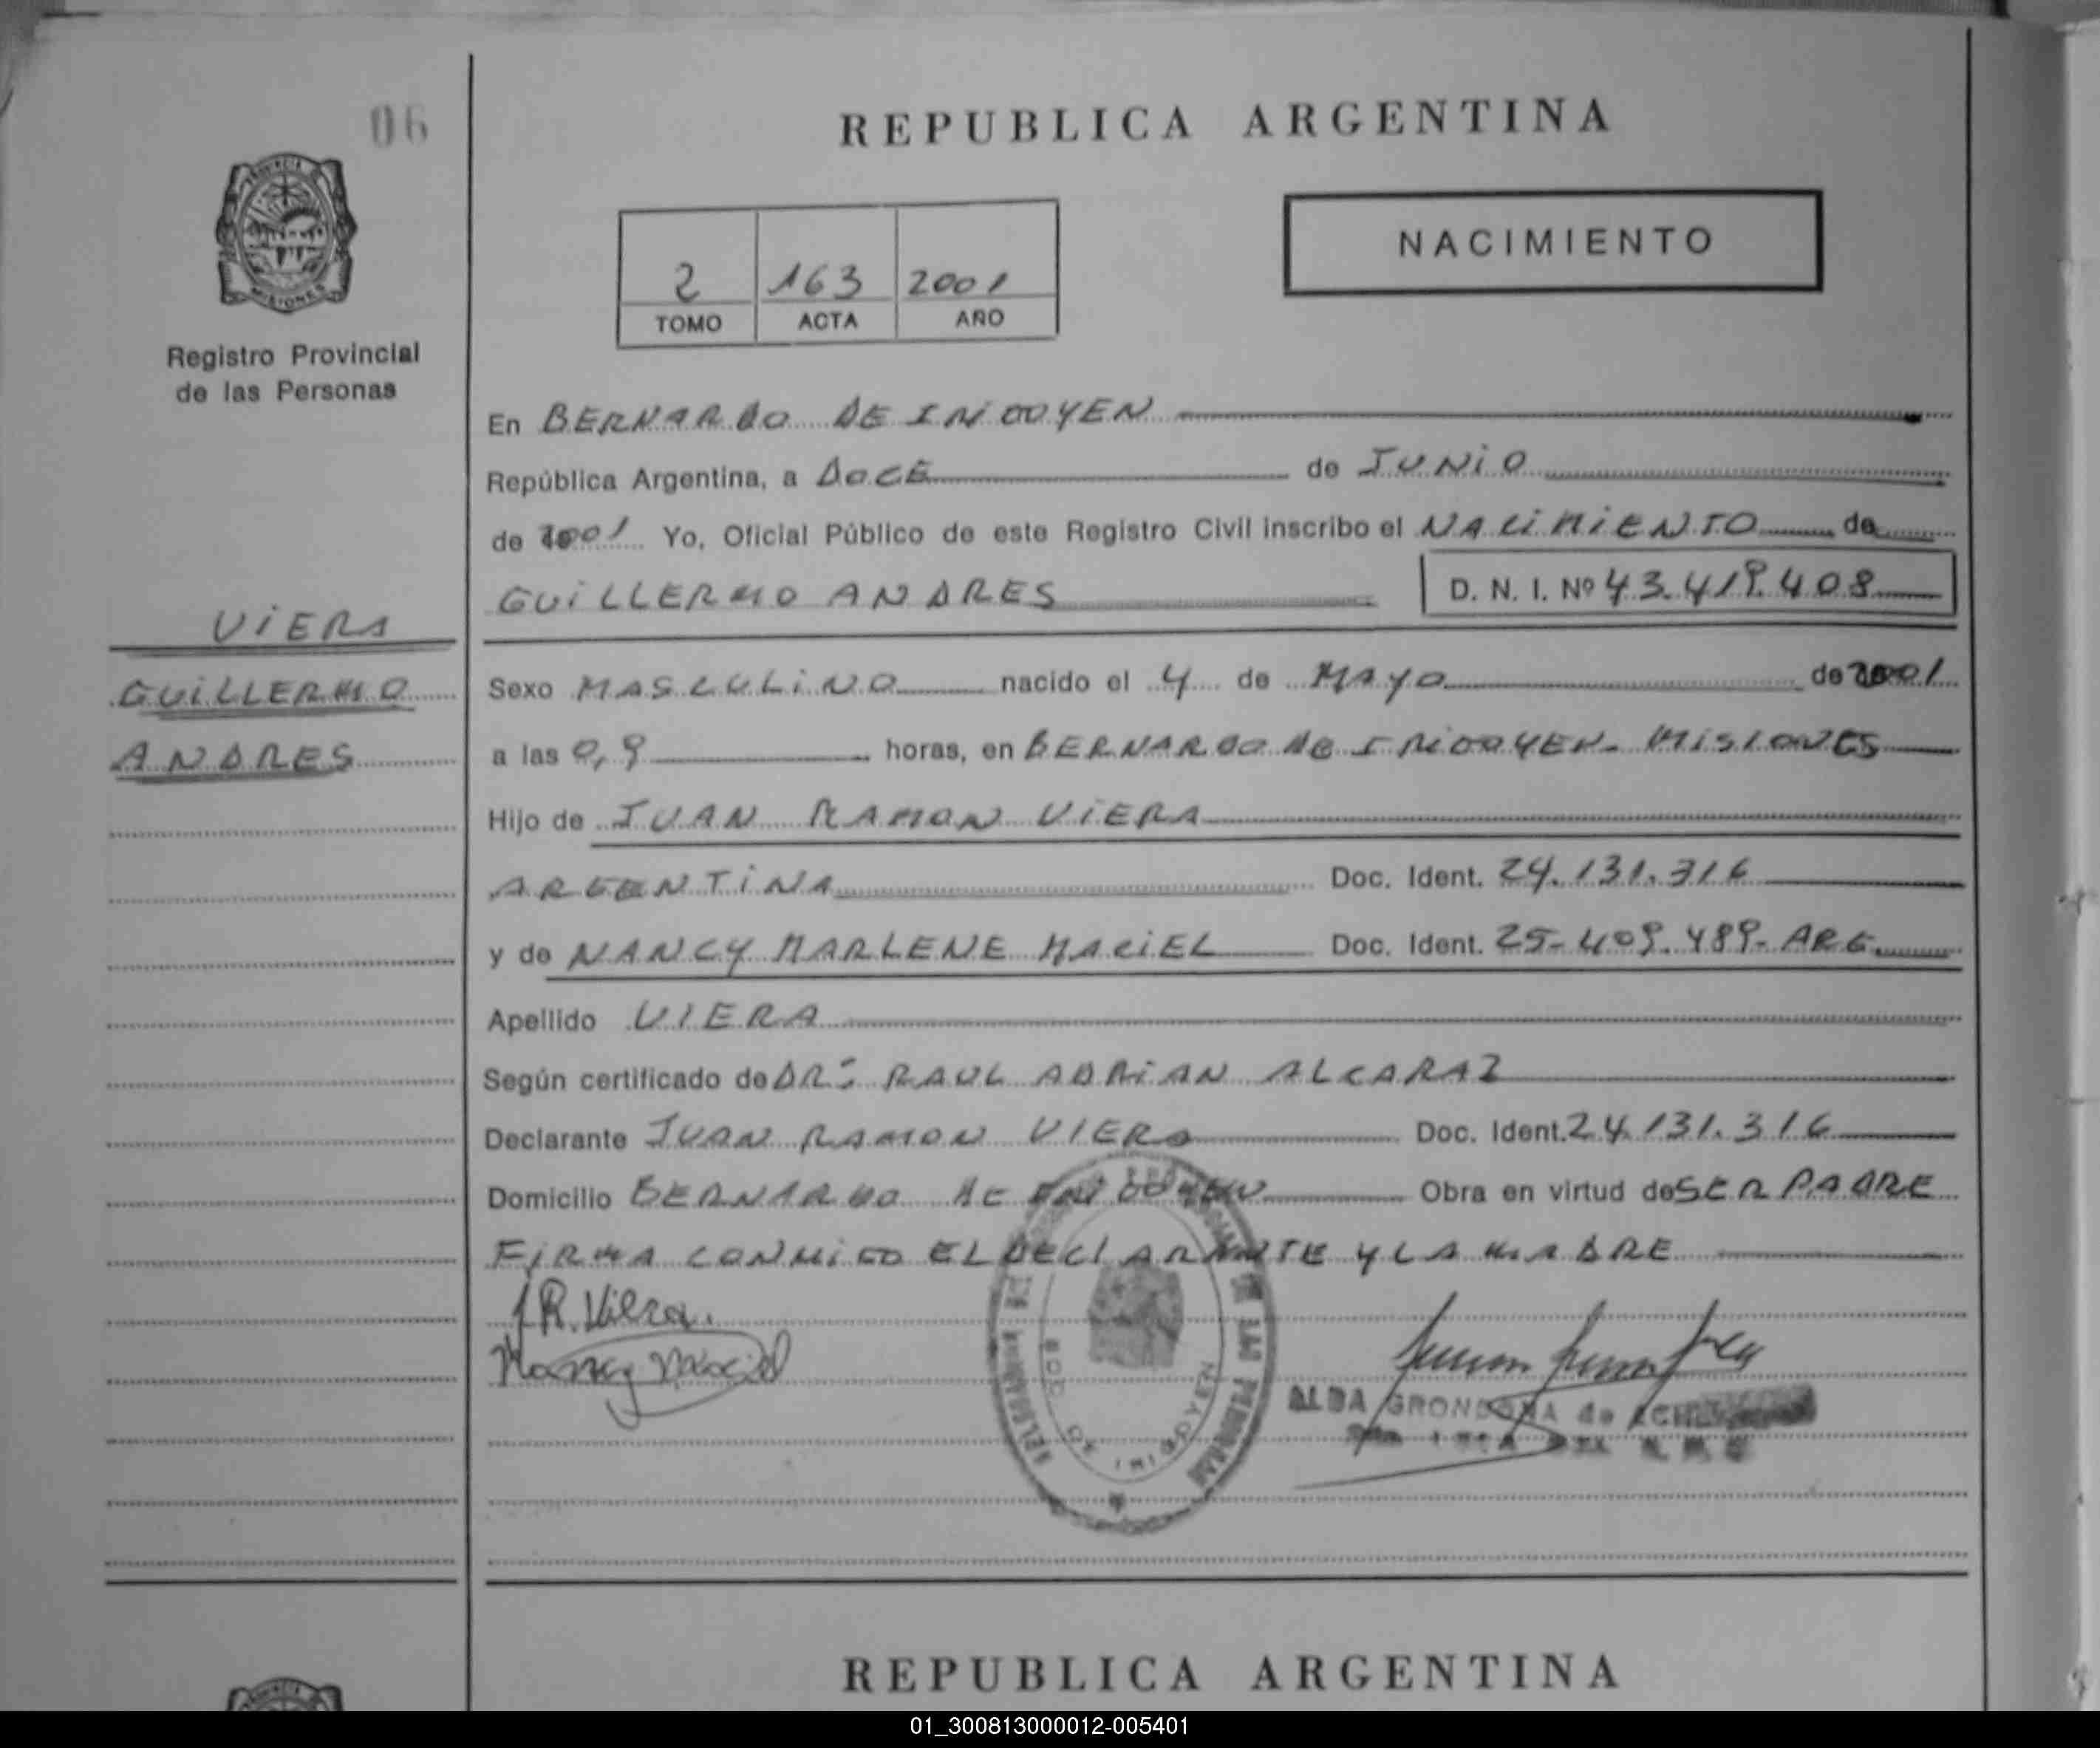 06
REPUBLICA ARGENTINA
PROVINCIA
MISIONES
Registro Provincial
de las Personas
2 163 2001
TOMO ACTA AÑO
NACIMIENTO
En BERNARDO DE IRIGOYEN
República Argentina, a DOCE de JUNIO
de 2001 Yo, Oficial Público de este Registro Civil inscribo el NACIMIENTO de
GUILLERMO ANDRES D. N. I. Nº 43.419.408
VIERA
GUILLERMO
ANDRES
Sexo MASCULINO nacido el 4 de MAYO de 2001
a las 0,9 horas, en BERNARDO DE IRIGOYEN - MISIONES
Hijo de JUAN RAMON VIERA
ARGENTINA Doc. Ident. 24.131.316
y de NANCY MARLENE MACIEL Doc. Ident. 25-409.489- ARG.
Apellido VIERA
Según certificado de DR: RAUL ADRIAN ALCARAZ
Declarante JUAN RAMON VIERA Doc. Ident. 24.131.316
Domicilio BERNARDO DE IRIGOYEN Obra en virtud de SER PADRE
FIRMA CONMIGO EL DECLARANTE Y LA MADRE
J.R. Viera.
Nancy Maciel
BDO. DE IRIGOYEN
ALDA GRONDONA de
REPUBLICA ARGENTINA
01_300813000012-005401